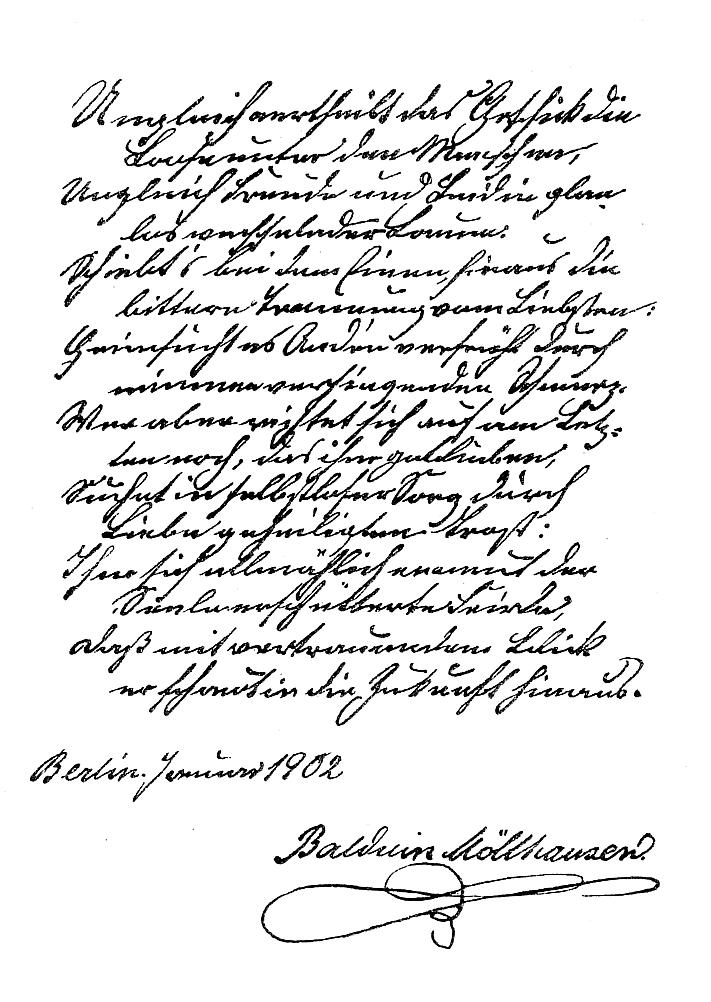 Ungleich vertheilt das Geschick die
Loose unter den Menschen,
Ungleich Freude und Leid in glau-
los wechselnder Laune:
Schiebt's bei dem Einen hinaus die
bittere Trennung vom Liebsten:
Heimsucht es Andre verfrüht durch
nimmer verjüngenden Schmerz.
Wer aber richtet sich auf am Letz-
ten noch, das ihm geblieben,
Suchet in selbstloser Sorg durch
Liebe geheiligten Trost:
Ihm sich allmählich erneut der
Seele erschütterte Friede,
Daß mit vertrauendem Blick
er schaut in die Zukunft hinaus.
Berlin. Januar 1902
Balduin Möllhausen.